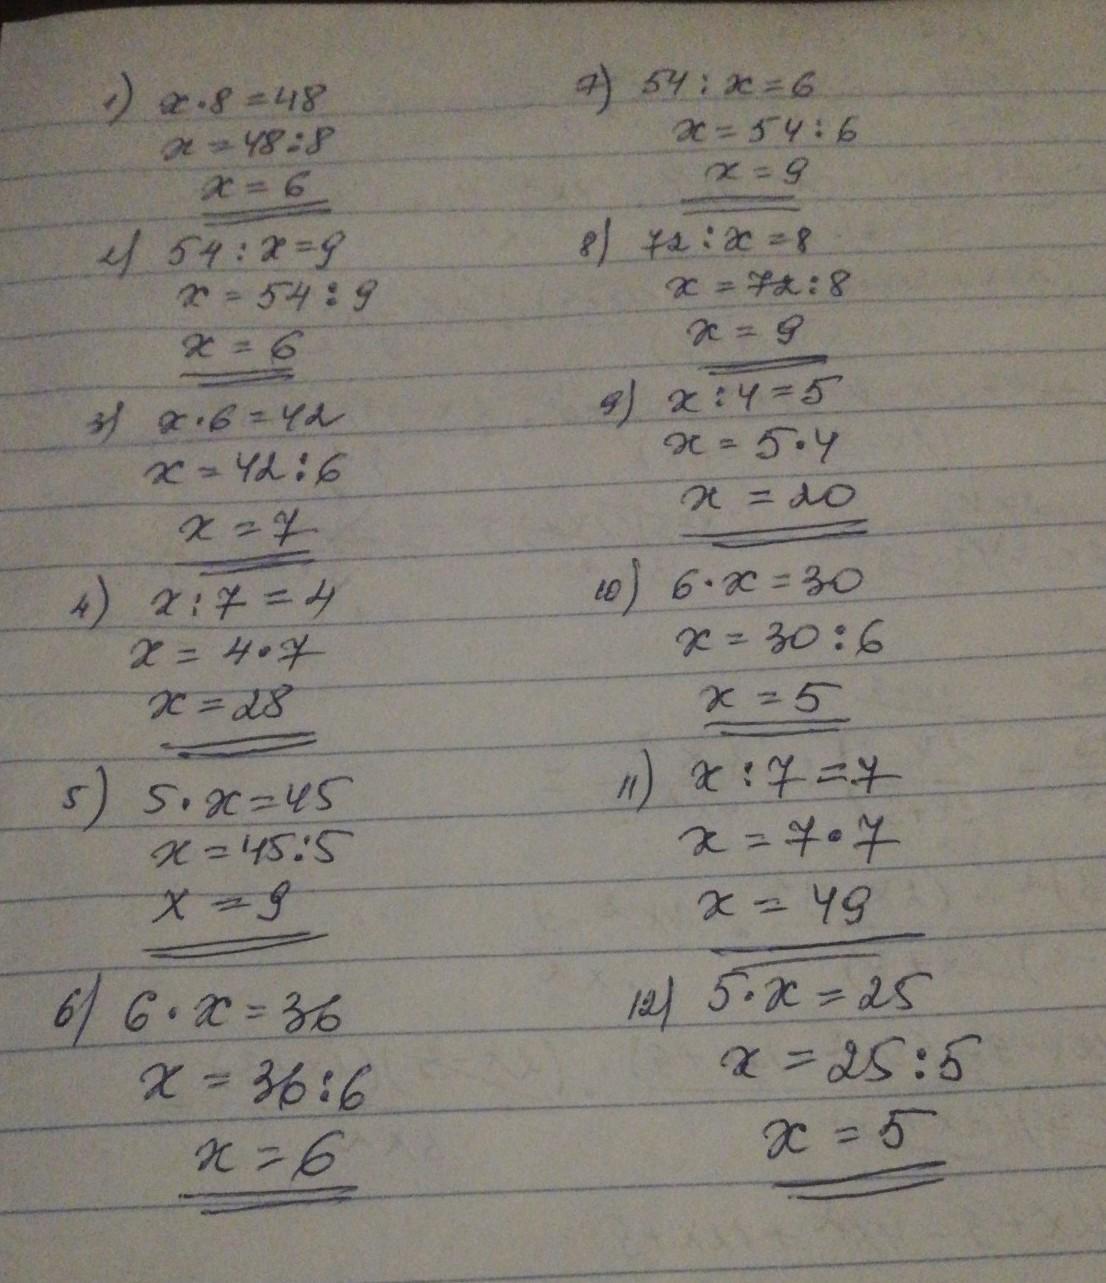 1) x·8=48
x=48:8
x=6
2) 54:x=9
x=54:9
x=6
3) x·6=42
x=42:6
x=7
4) x:7=4
x=4·7
x=28
5) 5·x=45
x=45:5
x=9
6) 6·x=36
x=36:6
x=6
7) 54:x=6
x=54:6
x=9
8) 72:x=8
x=72:8
x=9
9) x:4=5
x=5·4
x=20
10) 6·x=30
x=30:6
x=5
11) x:7=7
x=7·7
x=49
12) 5·x=25
x=25:5
x=5